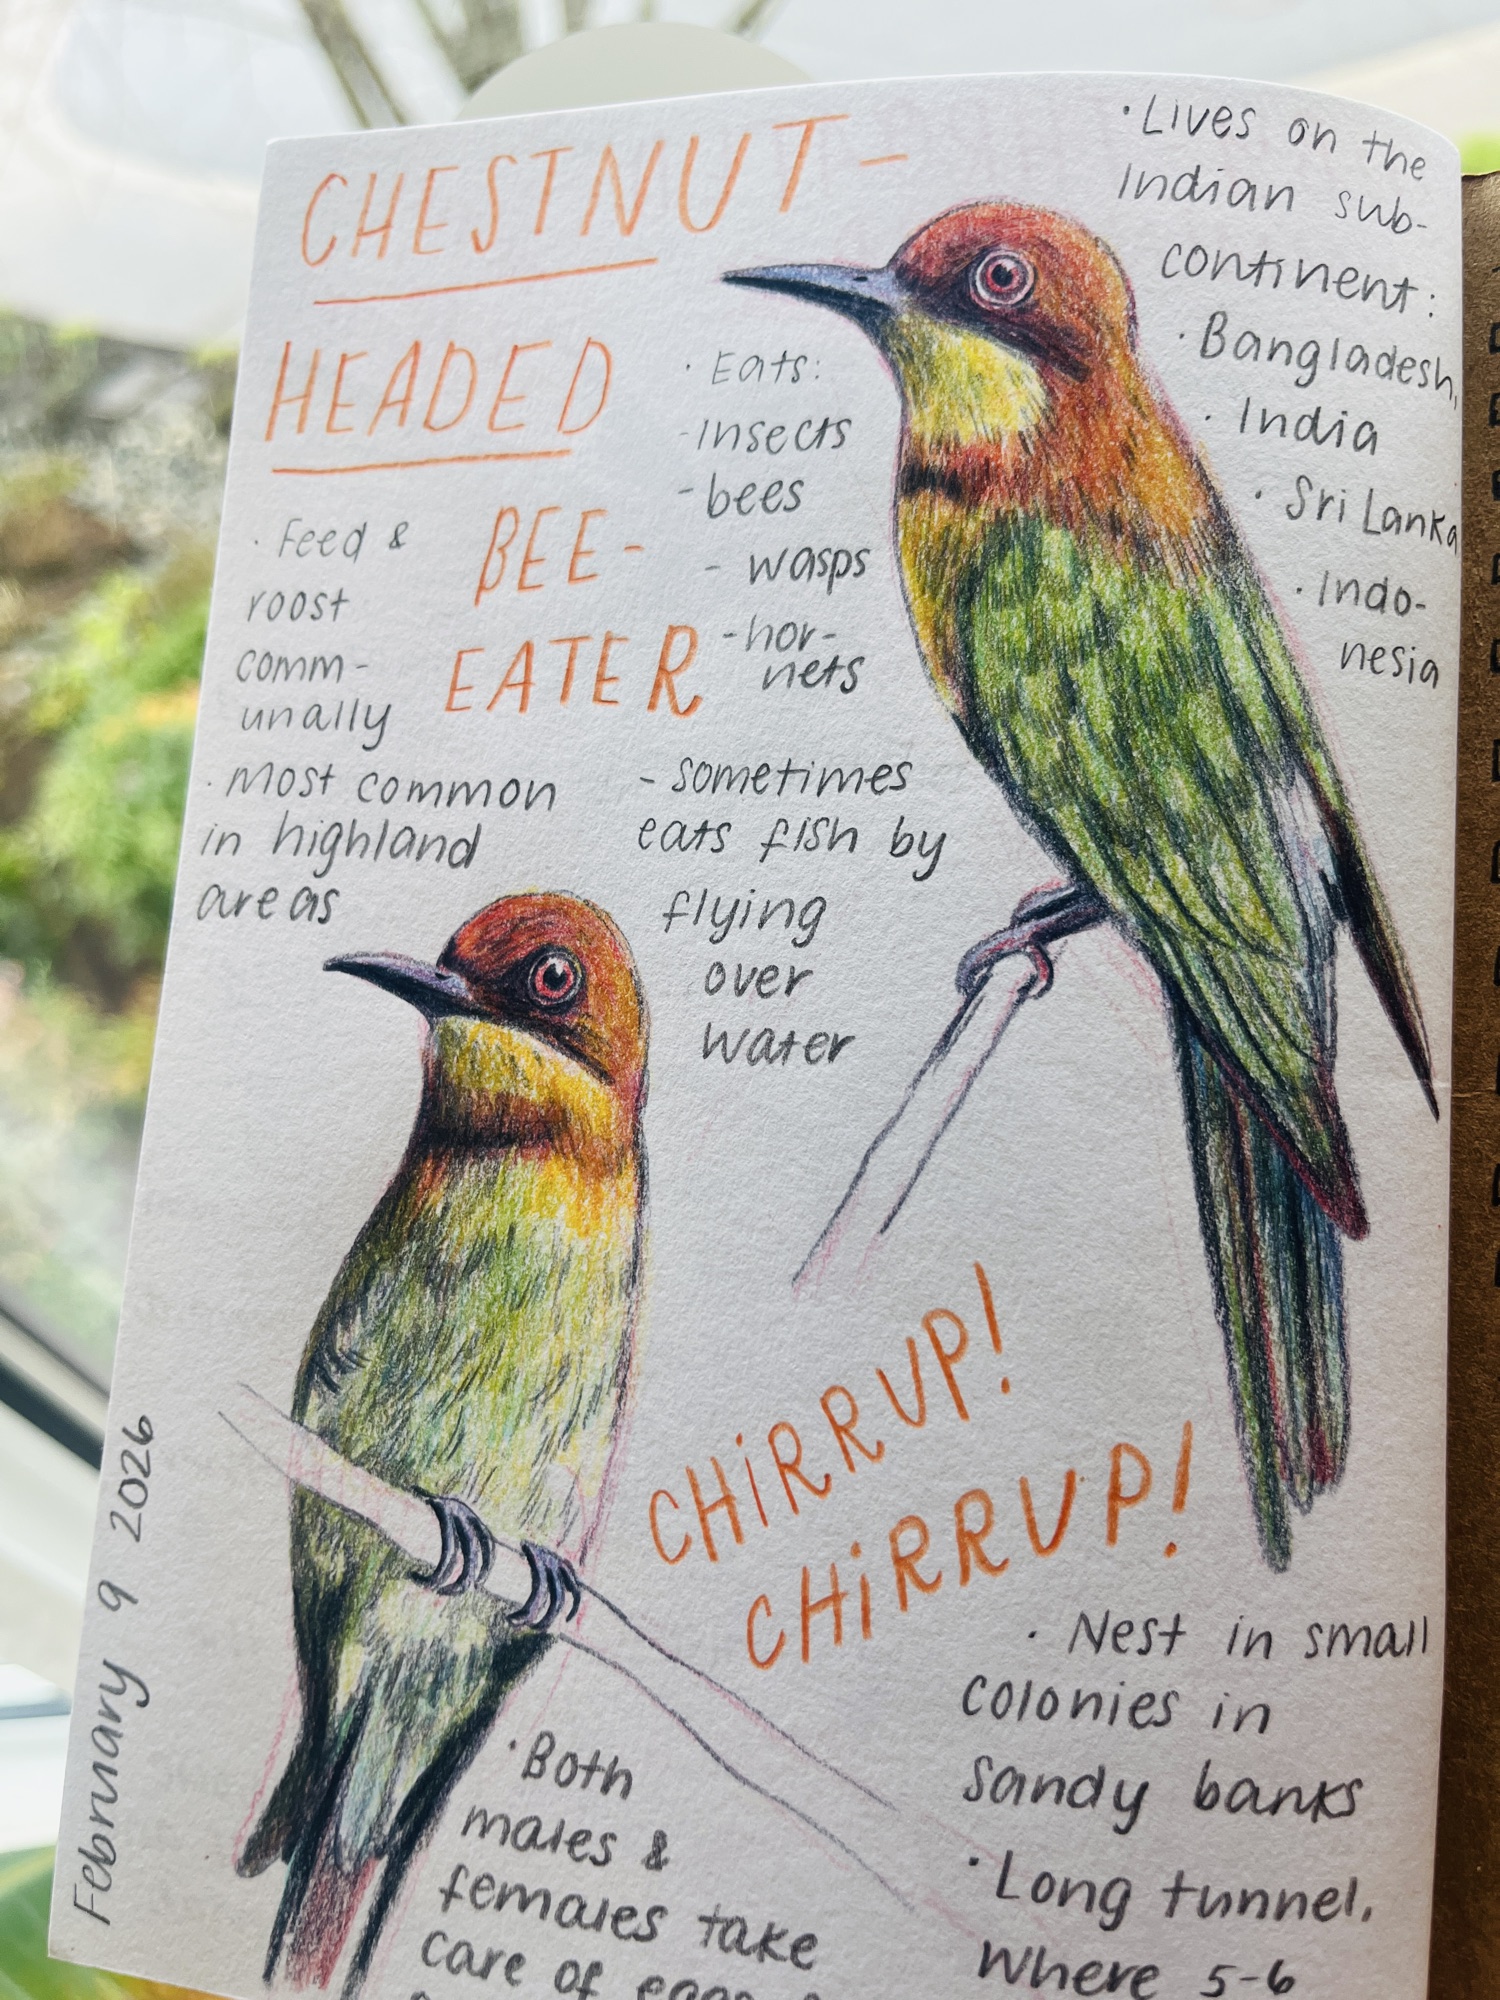 CHESTNUT-
HEADED
BEE-
EATER
· Lives on the
Indian sub-
continent:
· Bangladesh,
· India
· Sri Lanka
· Indo-
nesia
· Eats:
- insects
- bees
- wasps
- hor-
nets
- sometimes
eats fish by
flying
over
water
· Feed &
roost
comm-
unally
· Most common
in highland
areas
CHiRRUP!
CHiRRUP!
· Nest in small
colonies in
sandy banks
· Long tunnel,
where 5-6
· Both
males &
females take
care of eggs
February 9 2026